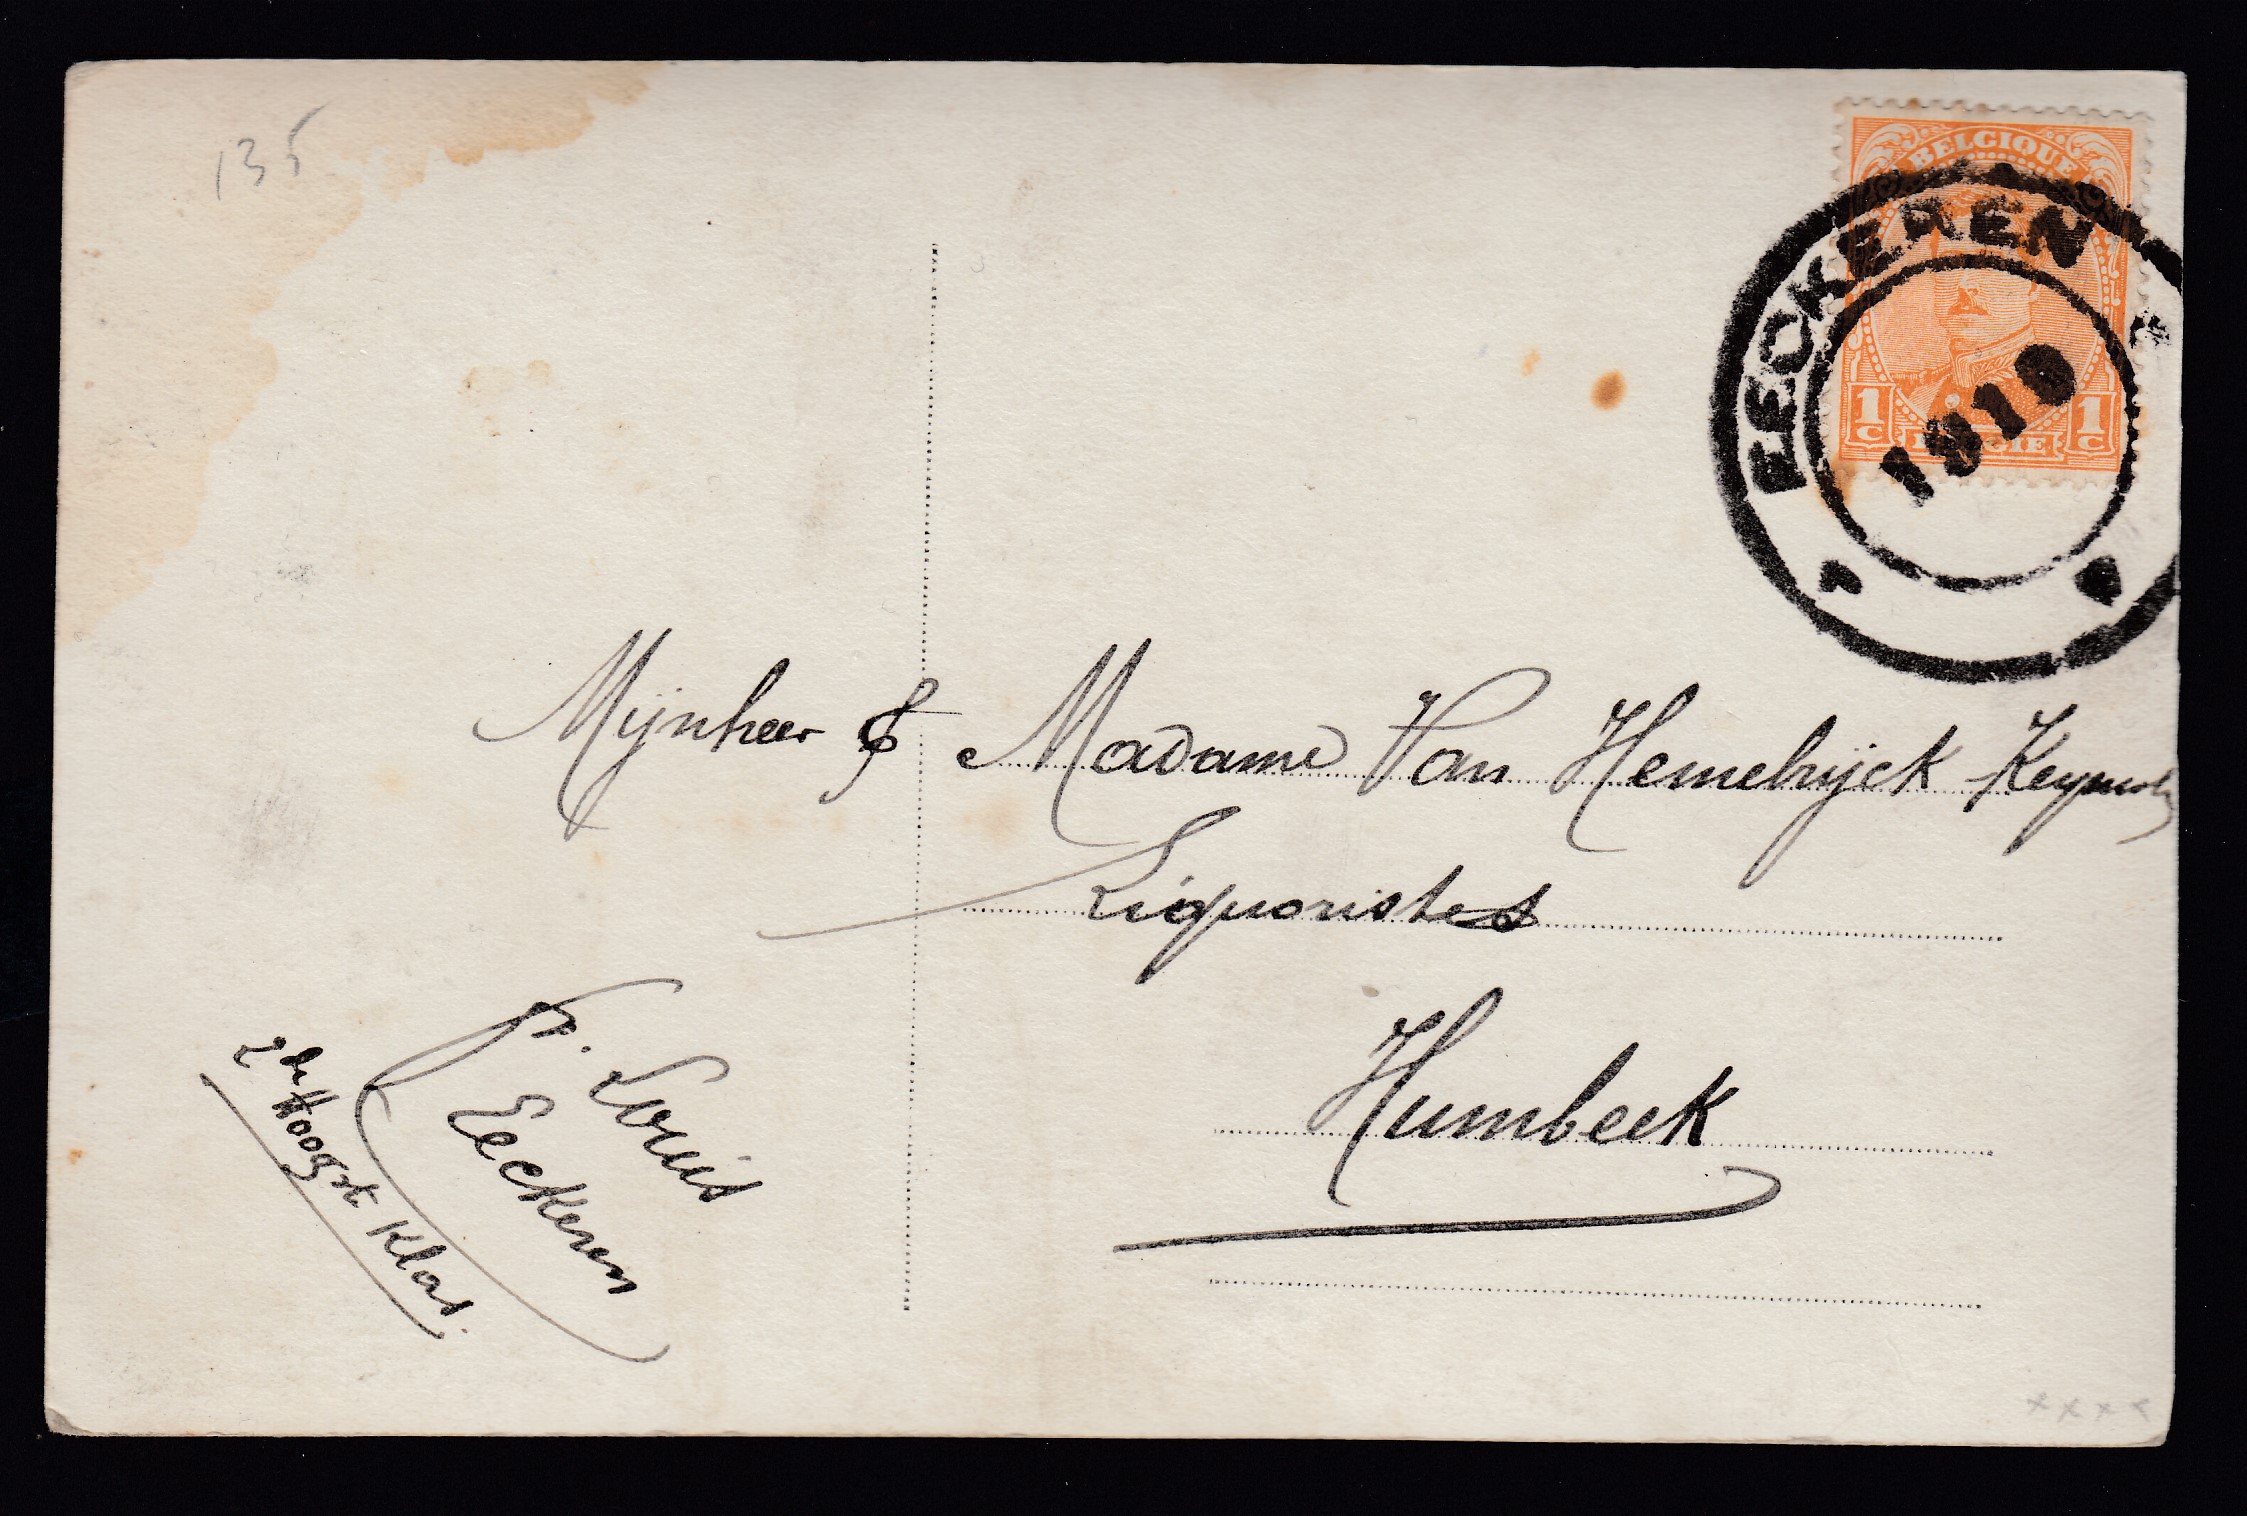 135
BELGIQUE
1c BELGIE 1c
EECKEREN
1919
Mijnheer & Madame Van Hemelrijck
Liquoristes
Humbeek
Fr. Louis
Eeckeren
2de Hoogste Klas.
xxxx